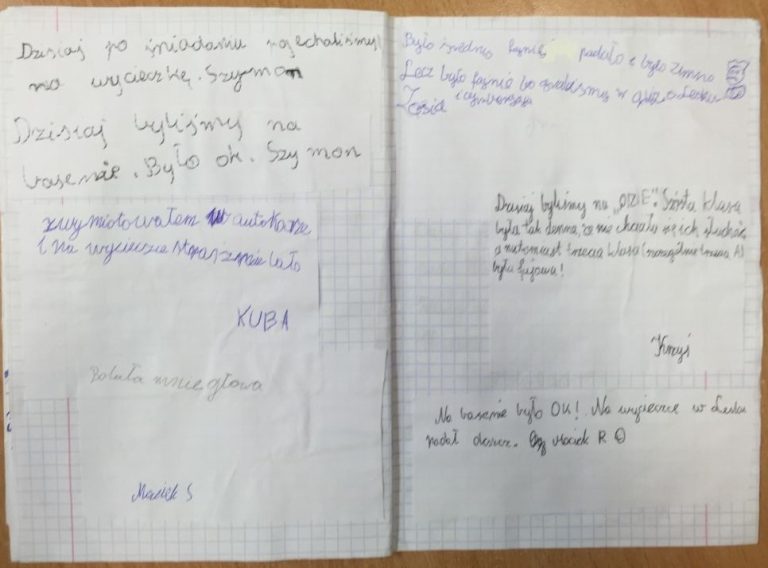 Dzisiaj po śniadaniu pojechaliśmy
na wycieczkę. Szymon
Dzisiaj byliśmy na
basenie. Było ok. Szymon
zwymiotowałem w autokarze
i na wycieczce strasznie lało
KUBA
Bolała mnie głowa
Maciek S
Było średnio fajnie padało i było zimno
Lecz było fajnie bo byliśmy w
Zosia
Dzisiaj byliśmy na „DZIE". Szósta klasa
była tak denna, że nie chciało się ich słuchać,
a natomiast trzecia klasa (szczególnie trzecia A)
była fajowa!
Krzyś
Na basenie było OK! Na wycieczce w Lesku
padał deszcz. Maciek R